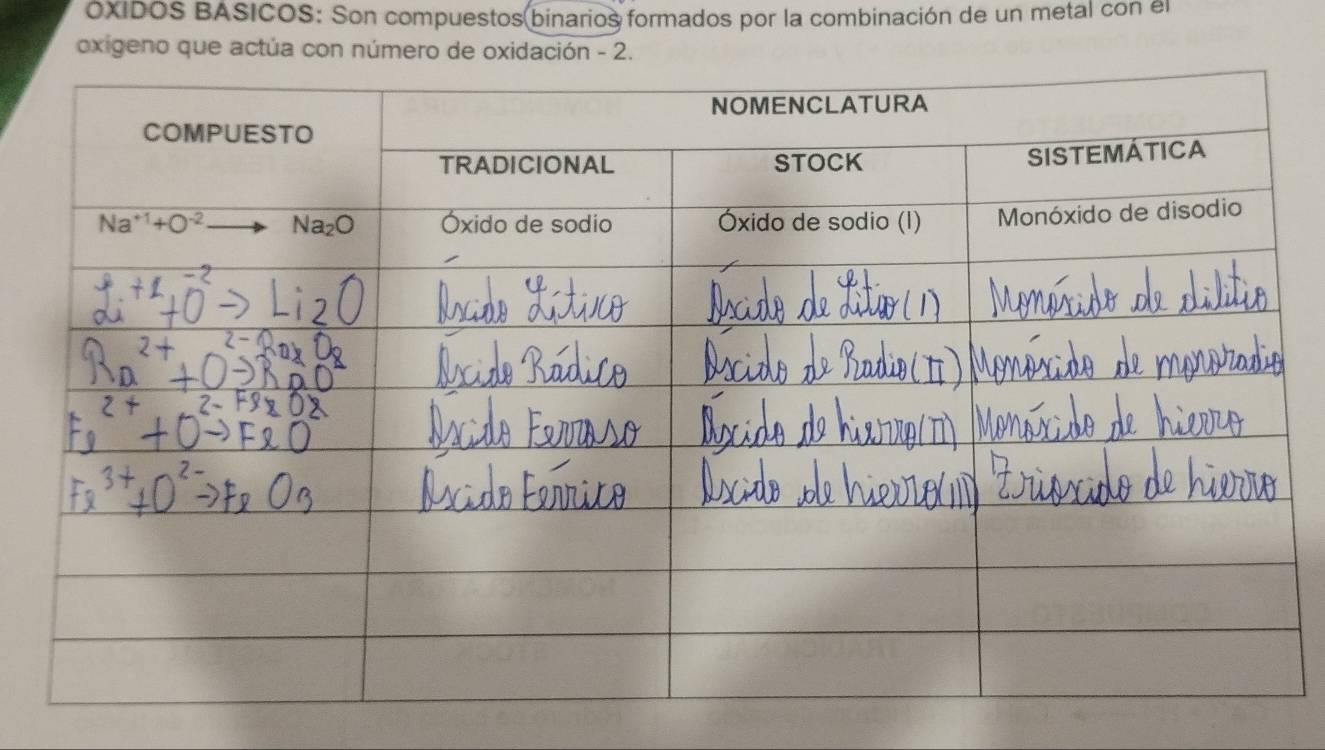 ÓXIDOS BÁSICOS: Son compuestos binarios formados por la combinación de un metal con el
oxigeno que actúa con número de oxidación - 2.
COMPUESTO
NOMENCLATURA
TRADICIONAL STOCK SISTEMÁTICA
Na⁺¹+O⁻² → Na₂O Óxido de sodio Óxido de sodio (I) Monóxido de disodio
Li⁺¹+O⁻² → Li₂O Óxido Lítico Óxido de Litio (I) Monóxido de dilitio
Ra²⁺ + O²⁻ → Ra₂O₂ RaO Óxido Rádico Óxido de Radio (II) Monóxido de monoradio
Fe²⁺ + O²⁻ → Fe₂O₂ FeO Óxido Ferroso Óxido de hierro (II) Monóxido de hierro
Fe³⁺ + O²⁻ → Fe₂O₃ Óxido Férrico Óxido de hierro (III) Trióxido de hierro